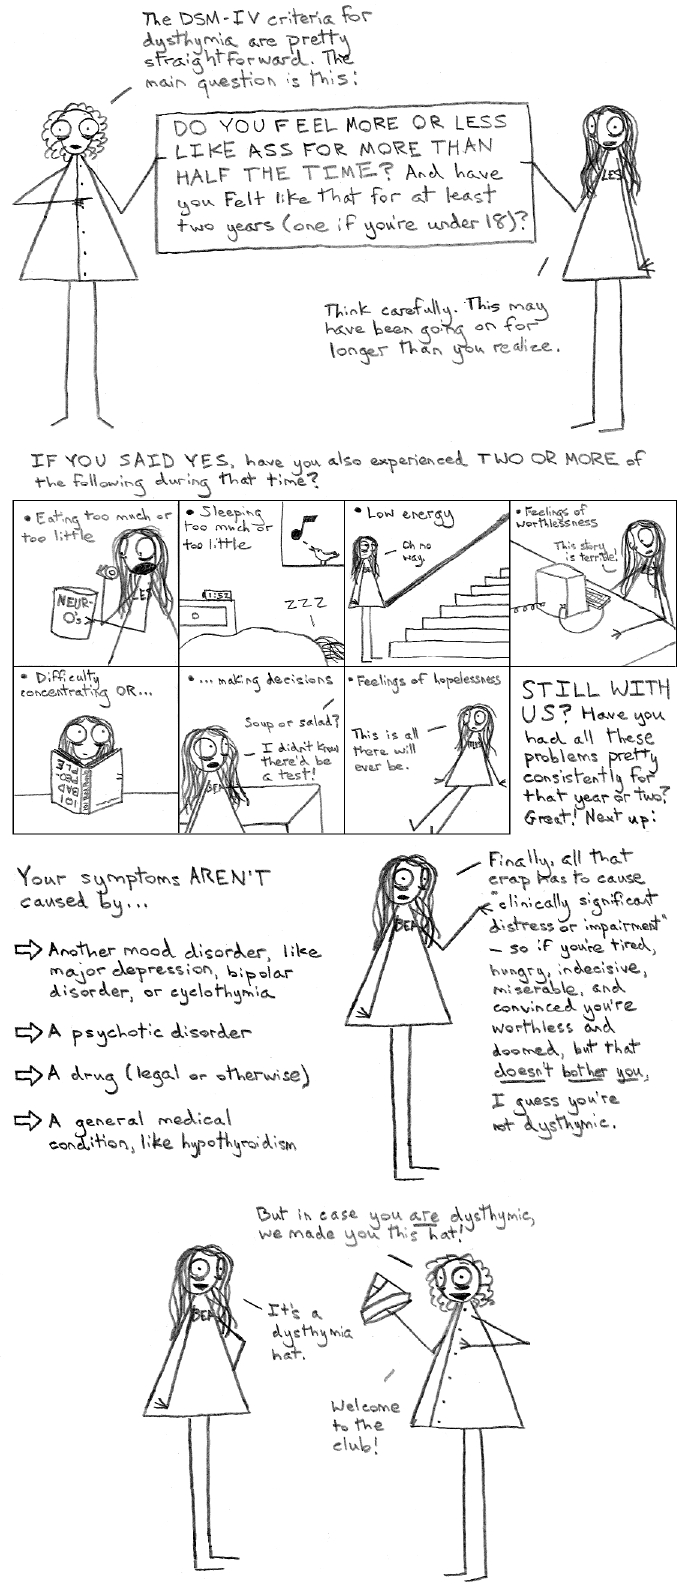 The DSM-IV criteria for
dysthymia are pretty
straightforward. The
main question is this:
DO YOU FEEL MORE OR LESS
LIKE ASS FOR MORE THAN
HALF THE TIME? And have
you felt like that for at least
two years (one if you're under 18)?
LES
Think carefully. This may
have been going on for
longer than you realize.
IF YOU SAID YES, have you also experienced TWO OR MORE of
the following during that time?
• Eating too much or
too little
NEUR-
O's
LES
• Sleeping
too much or
too little
1:52
ZZZ
• Low energy
Oh no
way.
• Feelings of
worthlessness
This story
is terrible!
• Difficulty
concentrating OR...
101
BAD
PEO-
PLE
• ... making decisions
Soup or salad?
I didn't know
there'd be
a test!
BEA
• Feelings of hopelessness
This is all
there will
ever be.
STILL WITH
US? Have you
had all these
problems pretty
consistently for
that year or two?
Great! Next up:
Your symptoms AREN'T
caused by...
⇨ Another mood disorder, like
major depression, bipolar
disorder, or cyclothymia
⇨ A psychotic disorder
⇨ A drug (legal or otherwise)
⇨ A general medical
condition, like hypothyroidism
BEA
Finally, all that
crap has to cause
"clinically significant
distress or impairment"
— so if you're tired,
hungry, indecisive,
miserable, and
convinced you're
worthless and
doomed, but that
doesn't bother you,
I guess you're
not dysthymic.
But in case you are dysthymic,
we made you this hat!
BEA
It's a
dysthymia
hat.
Welcome
to the
club!